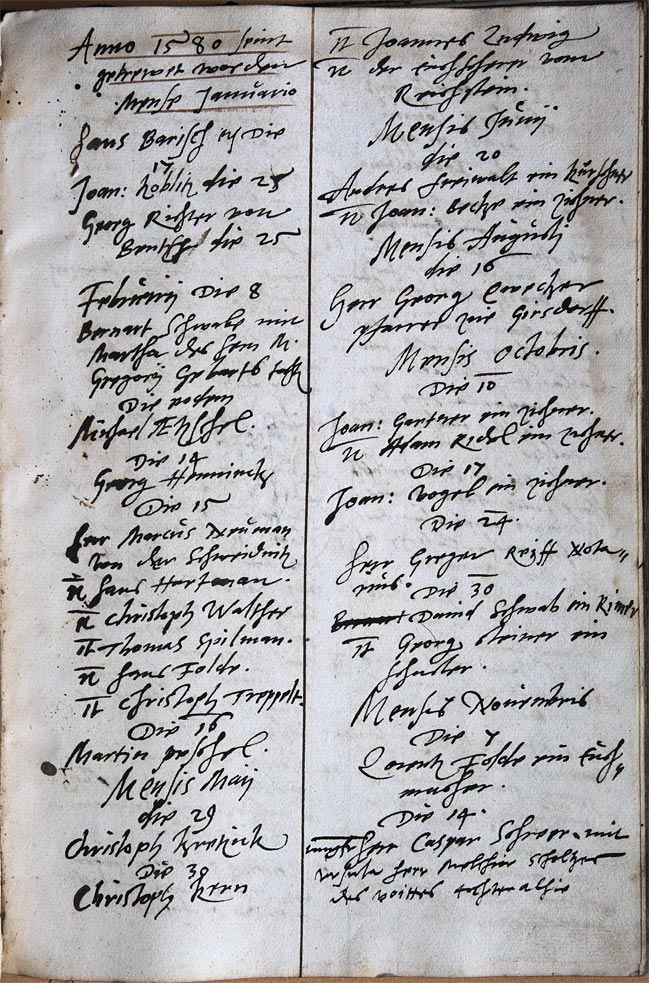 Anno 1580 seint
getrewet worden
Mense Januario
Hans Barisch die
17
Joan: Koblitz die 25
Georg Richter von
die 25
Februarij Die 8
Bernart Schwabe mit
Martha des Hern M.
Gregorij Gebarts
Die eodem
Michael
Die 14
Georg
Die 15
Herr Marcus Neuman
von der Schweidnitz
It Hans Hartman.
It Christoph Walther
It Thomas Spilman.
It Hans Folde.
It Christoph Treppelt.
Die 16
Martin peschel.
Mensis Maij
die 29
Christoph
Die 30
Christoph Kern
It Joannes Ludwig
It der vom
Reichstein.
Mensis Junij
die 20
Andres Freiwalt ein Kürschner
It Joan: ein zichner.
Mensis Augusti
die 16
Herr Georg
pfarrer zue Girsdorff.
Mensis Octobris.
Die 10
Joan: Gertner ein zichner.
It Adam Ridel ein zichner.
Die 17
Joan: Vogel ein zichner.
Die 24.
Herr Greger Reiff Nota„
rius.
Die 30
David Schwab ein Rimer
It Georg Steiner ein
schuster.
Mensis Nouembris
Die 7
Lorentz Folde ein Tuch„
macher.
Die 14.
Herr Caspar mit
Ursula Herr Melchior Scholzes
des voittes tochter alhie